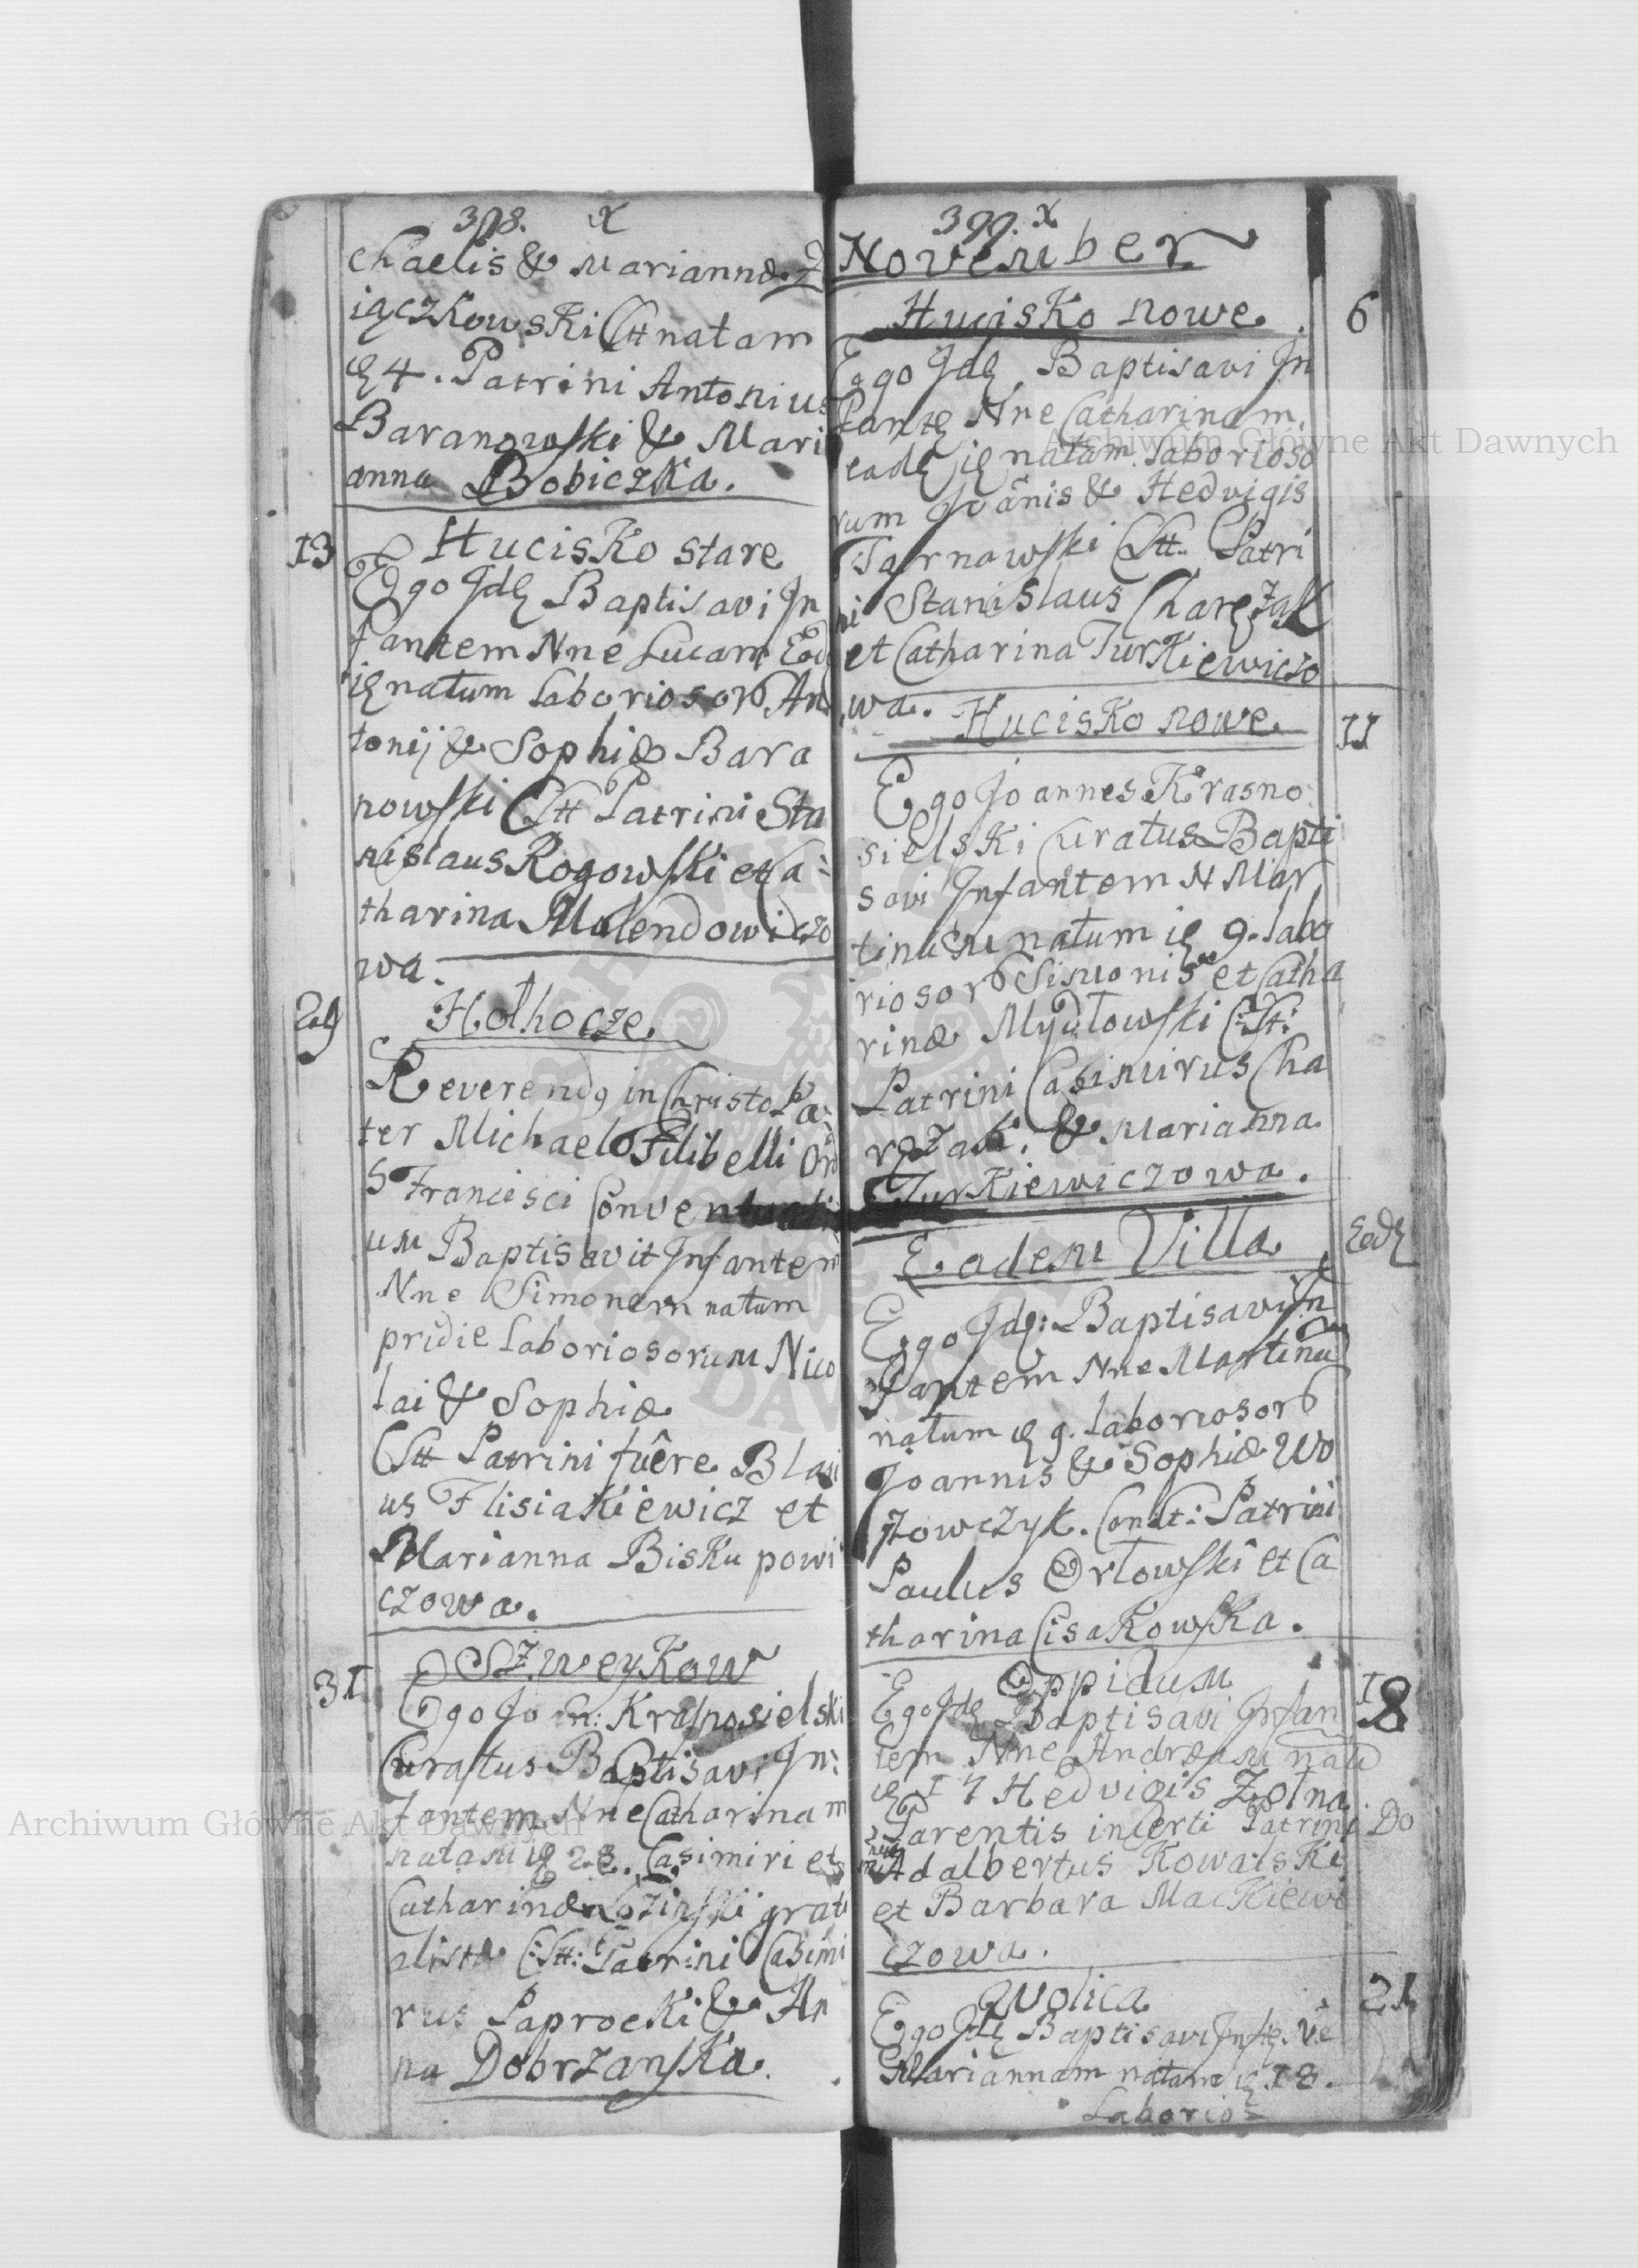 398. X
chaelis & Mariannæ Z
iączkowski Ctt natam
4. Patrini Antonius
Baranowski & Mari
anna Bobiczka.
13
Hucisko stare
Ego Jdę Baptisavi Jn
fantem Nne Lucam Eod
ię natum Laboriosor An
tonij & Sophiæ Bara
nowski Ctt Patrini Sta
nislaus Rogowski et Ca:
tharina Malendowiczo
wa.
29
Hothocze
Reverendq in Christo Pa:
ter Michael Filibelli Ord
S Francisci Conventuali
um Baptisavit Jnfantem
Nne Simonem natum
pridie Laboriosorum Nico
lai & Sophiæ
Ctt Patrini fuêre Blasi
us Flisiakiewicz et
Marianna Biskupowi
czowa.
31
Szweykow
Ego Joan: Krasnosielski
Curatus Baptisavi Jn:
fantem Nne Catharinam
natam ię 28. Casimiri et
Catharinæ Łoziński grati
alistæ Ctt: Patrini Casimi
rus Paprocki & An
na Dobrzanska.
399. X
November
Hucisko nowe.
6
Ego Jdę Baptisavi Jn
fantę Nne Catharinam
eadę ię natam. Laborioso
rum Joânis & Hedvigis
Tarnowski Ctt. Patri
ni Stanislaus Charęzak
et Catharina Turkiewiczo
wa.
Hucisko nowe.
11
Ego Joannes Krasno
sielski Curatus Bapti
savi Jnfantem N Mar
tinum natum ię 9. Labo
riosor Simonis et Catha
rinæ Mydłowski Ctt:
Patrini Casimirus Cha
ręzak. & Marianna
Turkiewiczowa.
Eadem Villa
Eadę
Ego Jdę: Baptisavi Jn
fantem Nne Martinũ
natum ię 9. Laboriosor
Joannis & Sophiæ Wo
zowczyk. Condt: Patrini
Paulus Orłowski et Ca
tharina Cisakowska.
Oppidum
18
Ego Jdę Baptisavi Jnfan
tem Nne Andream natũ
ię 17 Hedvigis Zołna
Parentis incerti Patrini Do
Adalbertus Kowalski
et Barbara Mackiewi
czowa.
Wolica
21
Ego Jdę Baptisavi Jnftę Ne
Mariannam natam ię 18.
Laborio=
Archiwum Główne Akt Dawnych
Archiwum Główne Akt Dawnych